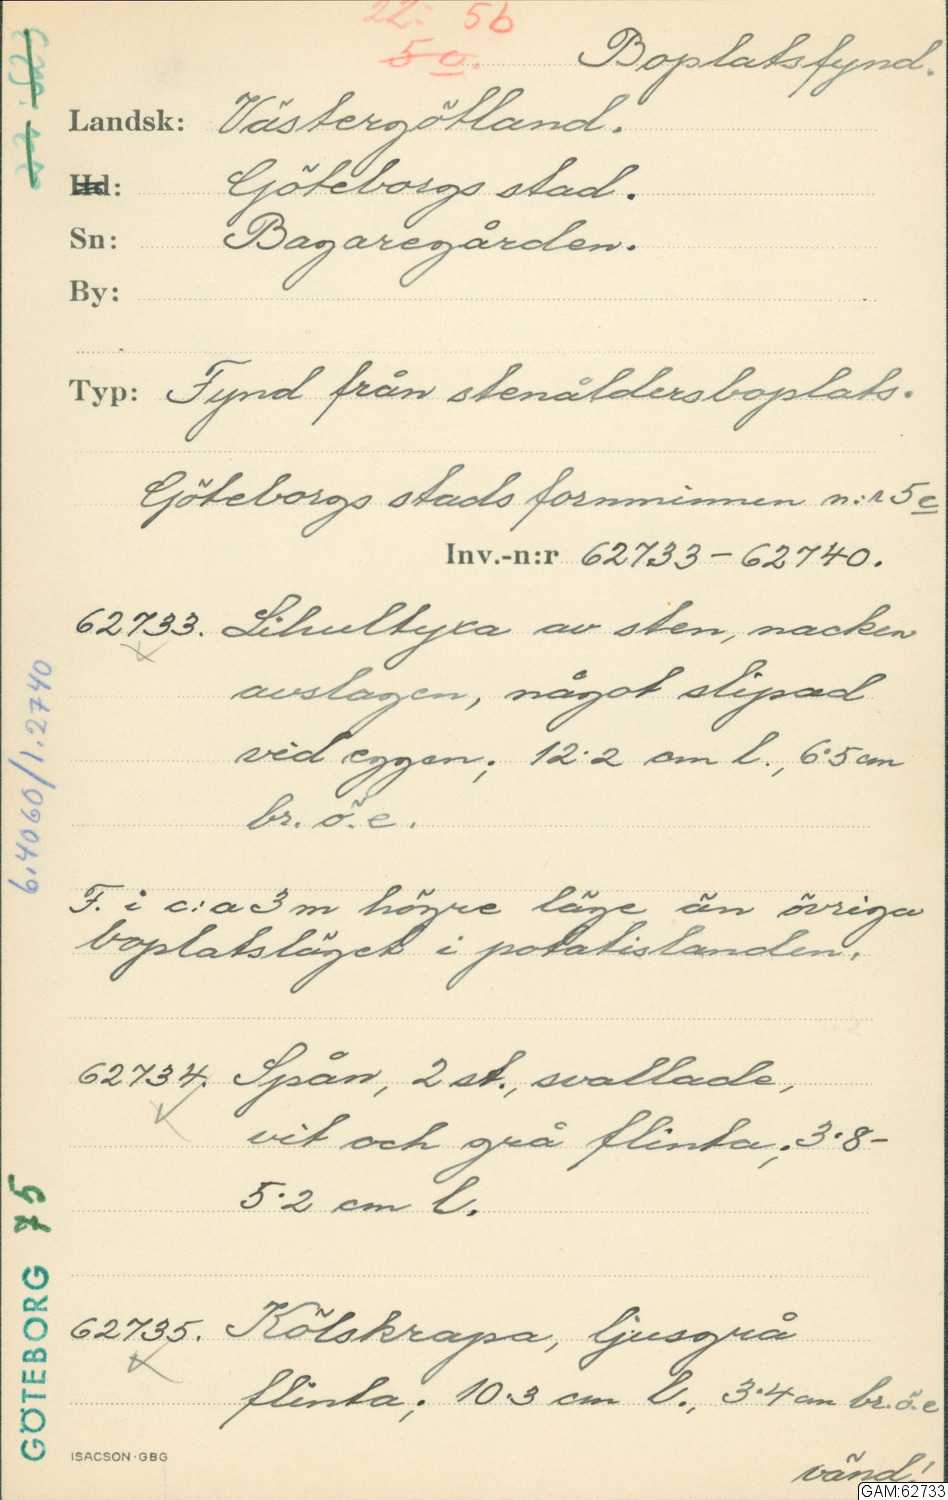 22: 5b
5a.
Boplatsfynd.
Landsk: Västergötland.
Hd: Göteborgs stad.
Sn: Bagaregården.
By:
Typ: Fynd från stenåldersboplats.
Göteborgs stads fornminnen n:r 5c
Inv.-n:r 62733-62740.
62733. Lihultyxa av sten, nacken
avslagen, något slipad
vid eggen; 12.2 cm l., 6.5 cm
br. ö. e.
F. i c:a 3 m högre läge än övriga
boplatsläget i potatislanden.
62734. Spån, 2 st., svallade,
vit och grå flinta; 3.8-
5.2 cm l.
62735. Kölskrapa, ljusgrå
flinta; 10.3 cm l., 3.4 cm br. ö. e
vänd!
ISACSON·GBG
GÖTEBORG 75
6.4060/1.2740
GAM:62733